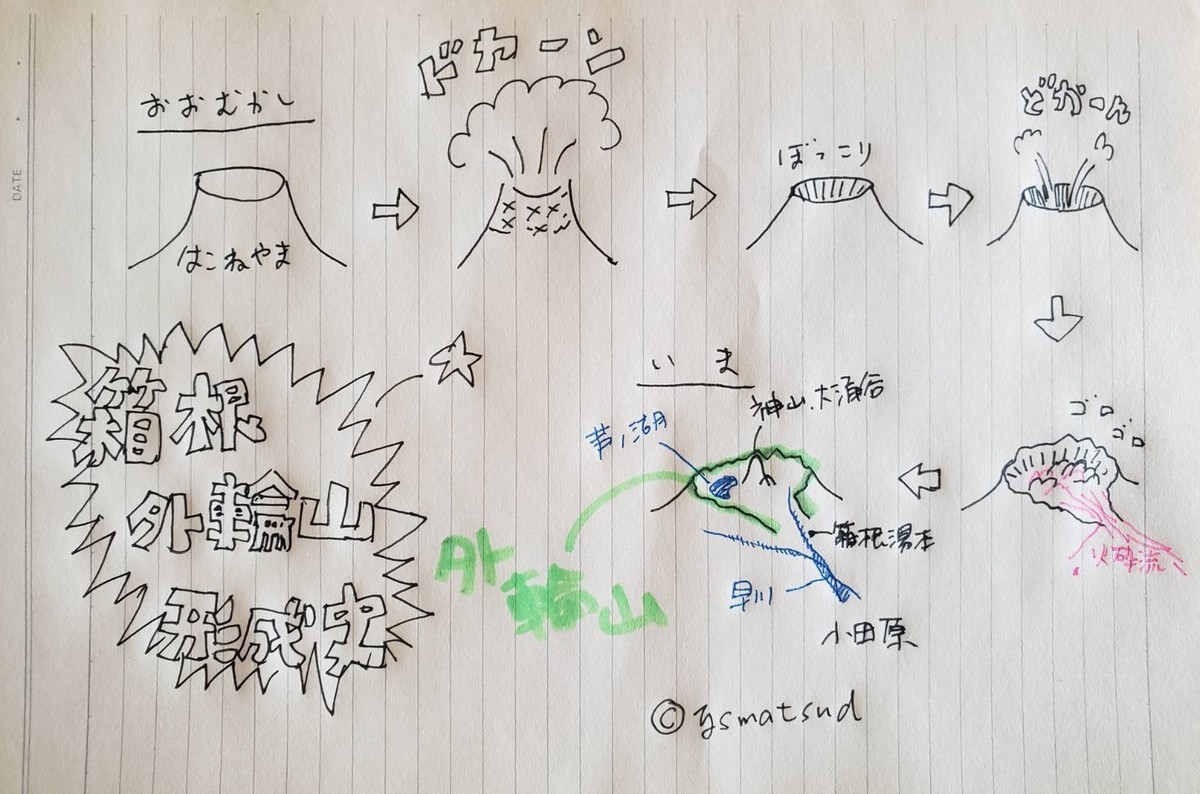 DATE
おおむかし
はこねやま
ドカーン
ぼっこり
どがーん
ゴロ
ゴロ
火砕流
いま
神山・大涌谷
芦ノ湖
箱根湯本
早川
小田原
外輪山
箱根
外輪山
形成史
© ysmatsud